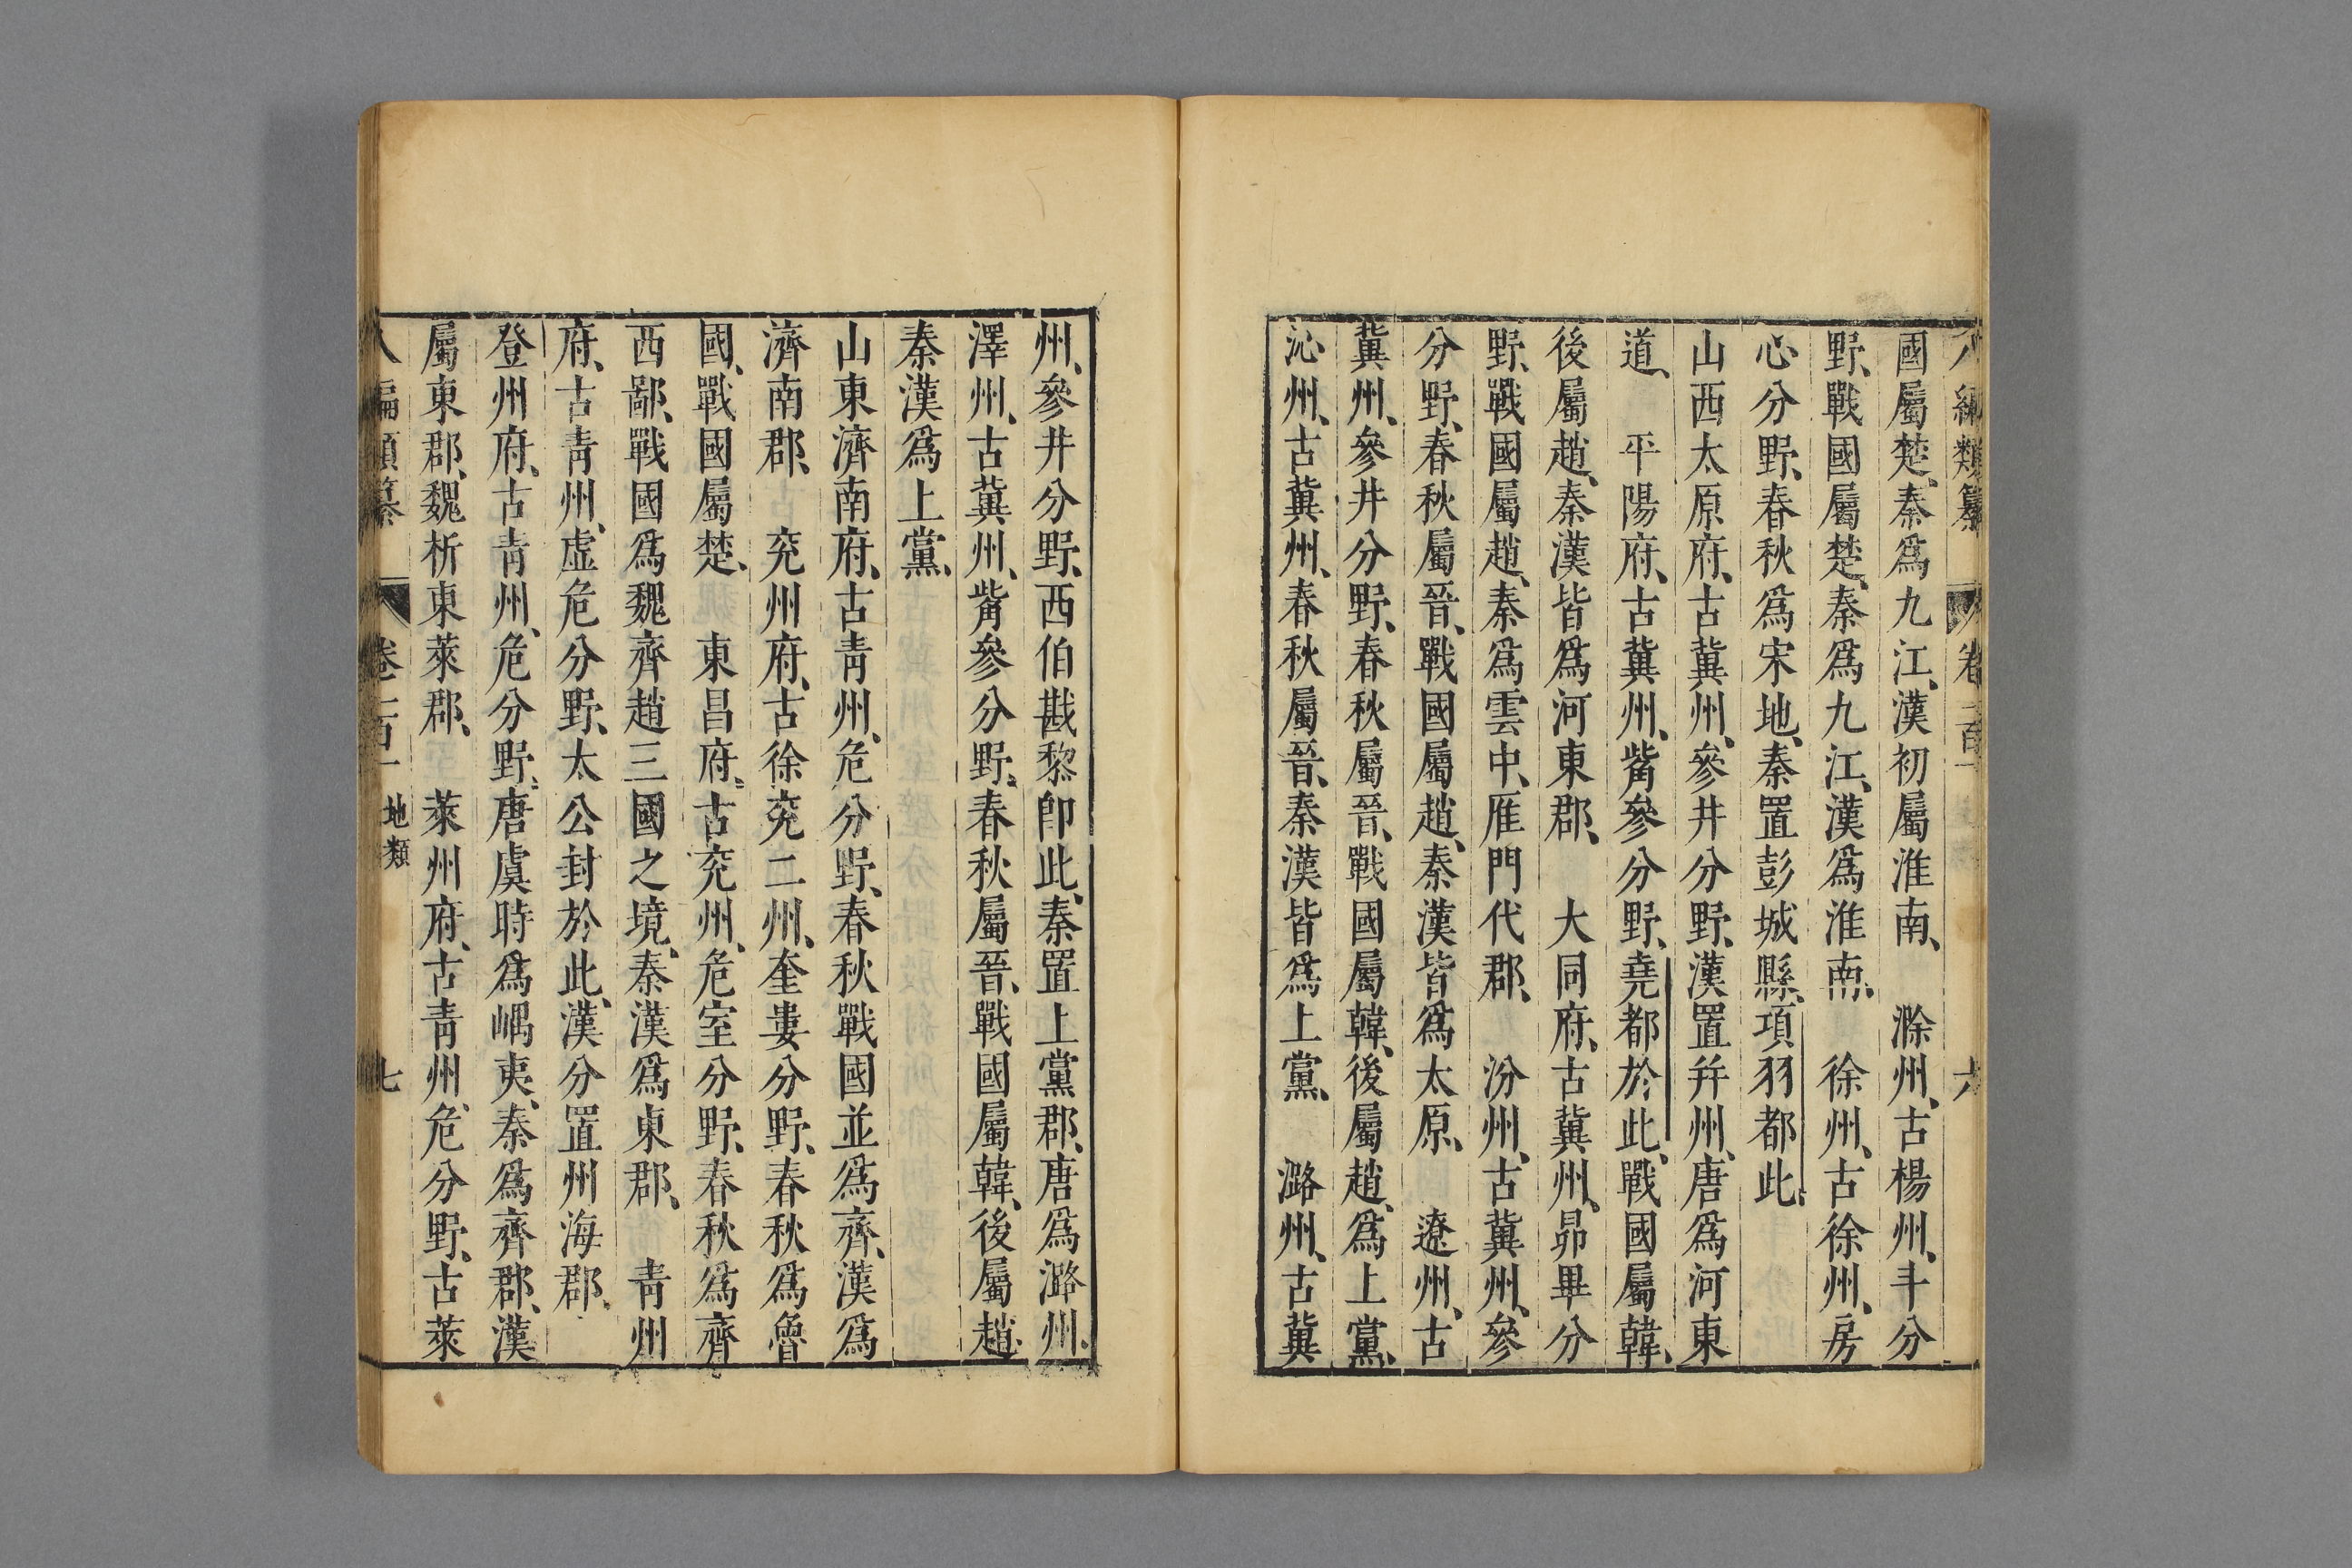 八編類纂 卷一百一 六
國屬楚、秦爲九江、漢初屬淮南、 滁州、古楊州、斗分
野、戰國屬楚、秦爲九江、漢爲淮南、 徐州、古徐州、房
心分野、春秋爲宋地、秦置彭城縣、項羽都此、
山西太原府、古冀州、參井分野、漢置幷州、唐爲河東
道、 平陽府、古冀州、觜參分野、堯都於此、戰國屬韓、
後屬趙、秦漢皆爲河東郡、 大同府、古冀州、昴畢分
野、戰國屬趙、秦爲雲中、雁門代郡、 汾州、古冀州、參
分野、春秋屬晉、戰國屬趙、秦漢皆爲太原、 遼州、古
冀州、參井分野、春秋屬晉、戰國屬韓、後屬趙、爲上黨、
沁州、古冀州、春秋屬晉、秦漢皆爲上黨、 潞州、古冀
州、參井分野、西伯戡黎卽此、秦置上黨郡、唐爲潞州、
澤州、古冀州、觜參分野、春秋屬晉、戰國屬韓、後屬趙、
秦漢爲上黨、
山東濟南府、古靑州、危分野、春秋戰國並爲齊、漢爲
濟南郡、 兖州府、古徐兖二州、奎婁分野、春秋爲魯
國、戰國屬楚、 東昌府、古兖州、危室分野、春秋爲齊
西鄙、戰國爲魏齊趙三國之境、秦漢爲東郡、 靑州
府、古靑州、虛危分野、太公封於此、漢分置州海郡、
登州府、古靑州、危分野、唐虞時爲嵎夷、秦爲齊郡、漢
屬東郡、魏析東萊郡、 萊州府、古靑州、危分野、古萊
八編類纂 卷一百一 地類 七